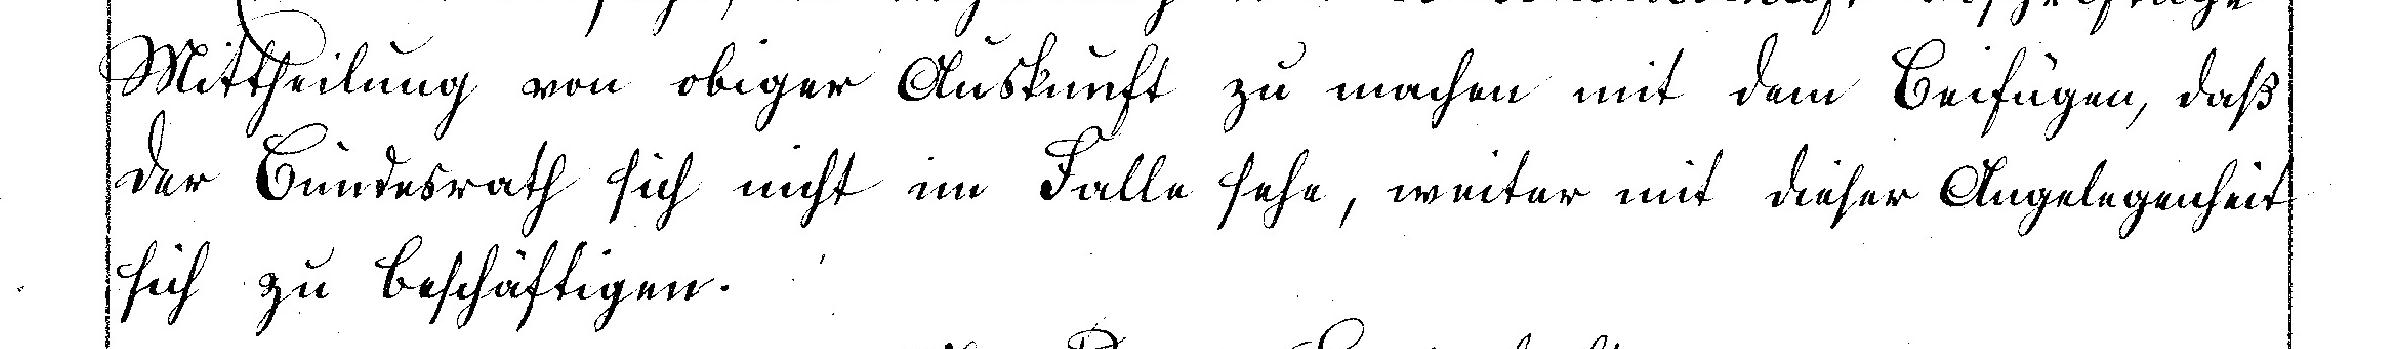 Mittheilung von obiger Auskunft zu machen mit dem Beifügen, daß
der Bundesrath sich nicht im Falle sehe, weiter mit dieser Angelegenheit
sich zu beschäftigen.